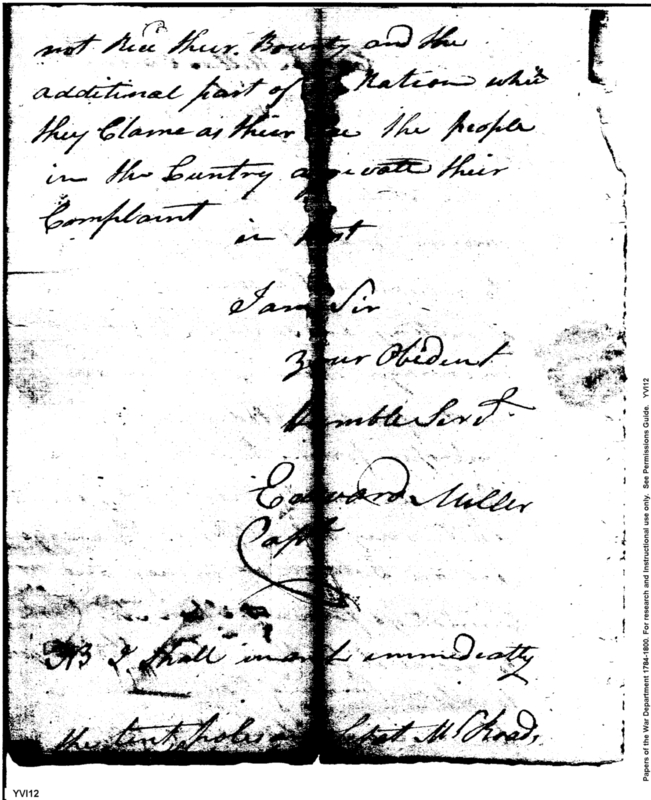 not Recd their Bounty and the
additional part of Nation which
they Clame as their the people
in the Cuntry agrevate their
Complaint
in
I am Sir
your Obedent
Humble Servt
Edward Miller
Capt
NB I Shall march immedeatly
the tent poles
YVI12
Papers of the War Department 1784-1800. For research and instructional use only. See Permissions Guide. YVI12